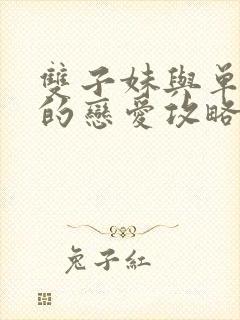 雙子妹與單
的戀愛攻略
兔子紅